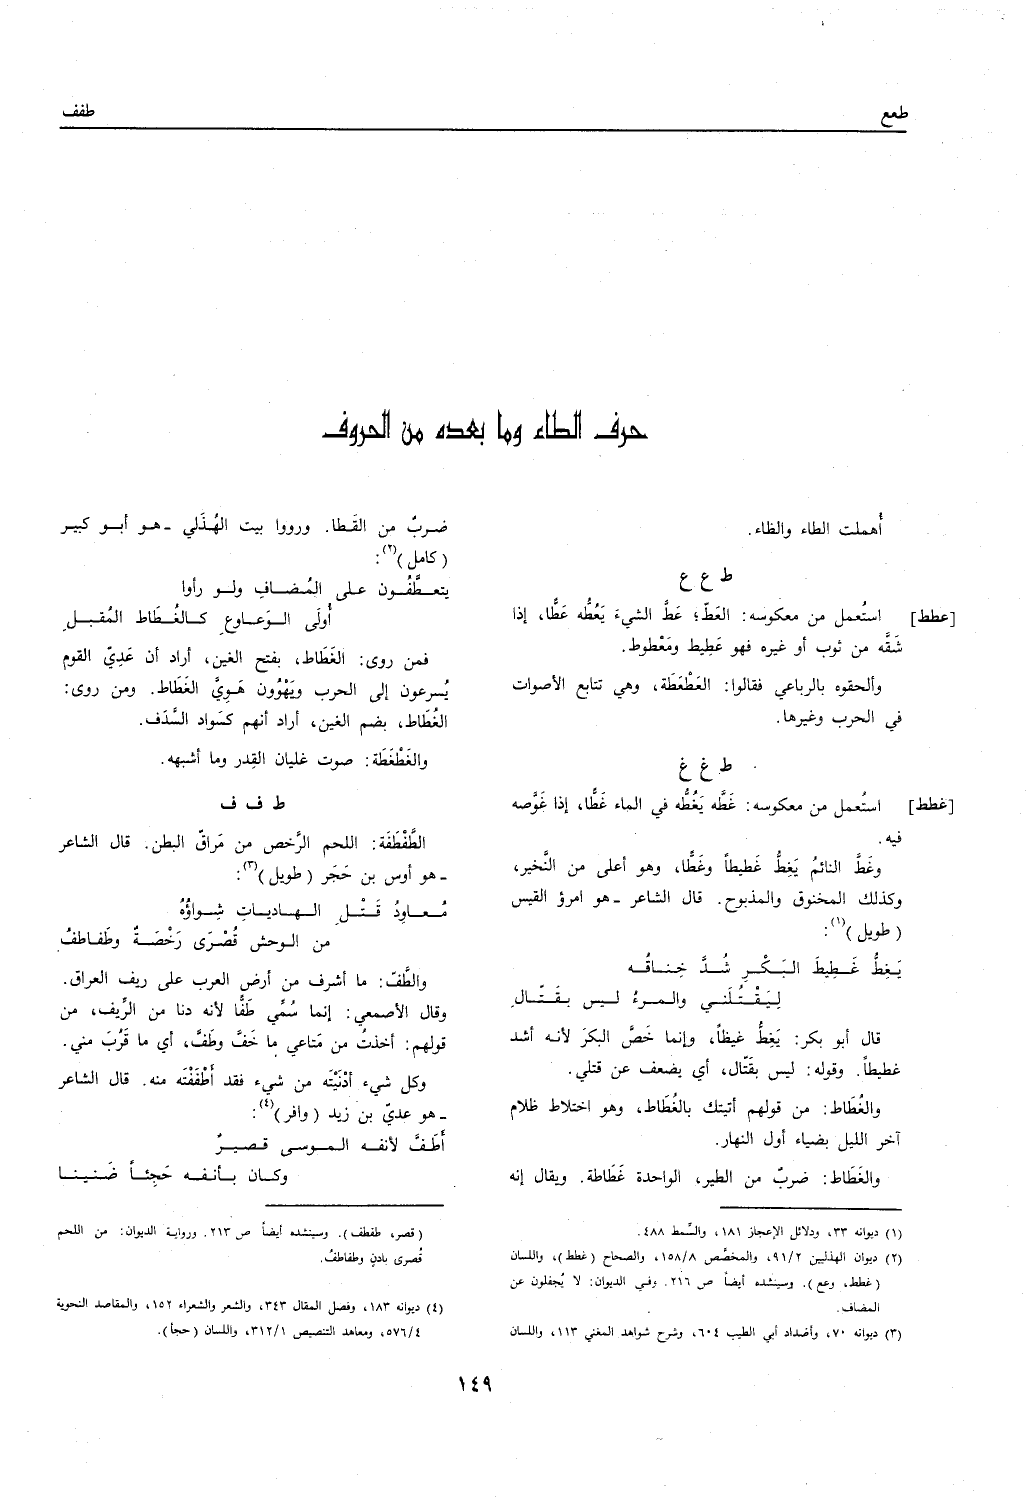 طعع
طفف
حرف الطاء وما بعده من الحروف
أُهملت الطاء والظاء.
ط ع ع
[عطط] استُعمل من معكوسه: العَطّ؛ عَطَّ الشيءَ يَعُطُّه عَطًّا، إذا
شَقَّه من ثوب أو غيره فهو عَطِيط ومَعْطوط.
وألحقوه بالرباعي فقالوا: العَطْعَطَة، وهي تتابع الأصوات
في الحرب وغيرها.
ط غ غ
[غطط] استُعمل من معكوسه: غَطَّه يَغُطُّه في الماء غَطًّا، إذا غَوَّصه
فيه.
وغَطَّ النائمُ يَغِطُّ غَطيطاً وغَطًّا، وهو أعلى من النَّخير،
وكذلك المخنوق والمذبوح. قال الشاعر ـ هو امرؤ القيس
(طويل)(١):
يَغِطُّ غَطِيطَ البَكْرِ شُدَّ خِناقُه
لِيَقْتُلَني والمرءُ ليس بقَتّالِ
قال أبو بكر: يَغِطُّ غيظاً، وإنما خَصَّ البكرَ لأنه أشد
غطيطاً. وقوله: ليس بقَتّال، أي يضعف عن قتلي.
والغُطَاط: من قولهم أتيتك بالغُطَاط، وهو اختلاط ظلام
آخر الليل بضياء أول النهار.
والغَطَاط: ضربٌ من الطير، الواحدة غَطَاطة. ويقال إنه
ضربٌ من القَطا. ورووا بيت الهُذَلي ـ هو أبو كبير
(كامل)(٢):
يتعطَّفُون على المُضافِ ولو رأوا
أُولَى الوَعاوعِ كالغُطَاط المُقبلِ
فمن روى: الغَطَاط، بفتح الغين، أراد أن عَدِيّ القوم
يُسرعون إلى الحرب ويَهْوُون هَوِيَّ الغَطَاط. ومن روى:
الغُطَاط، بضم الغين، أراد أنهم كسَواد السَّدَف.
والغَطْغَطَة: صوت غليان القِدر وما أشبهه.
ط ف ف
الطَّفْطَفَة: اللحم الرَّخص من مَراقّ البطن. قال الشاعر
ـ هو أوس بن حَجَر (طويل)(٣):
مُعاوِدُ قَتْلِ الهادياتِ شِواؤُهُ
من الوحش قُصْرَى رَخْصَةٌ وطَفاطفُ
والطَّفّ: ما أشرف من أرض العرب على ريف العراق.
وقال الأصمعي: إنما سُمِّي طَفًّا لأنه دنا من الرِّيف، من
قولهم: أخذتُ من مَتاعي ما خَفَّ وطَفَّ، أي ما قَرُبَ مني.
وكل شيء أدْنَيْته من شيء فقد أَطْفَفْتَه منه. قال الشاعر
ـ هو عديّ بن زيد (وافر)(٤):
أَطَفَّ لأنفه الموسى قصيرٌ
وكان بأنفه حَجِئاً ضَنينا
(١) ديوانه ٣٣، ودلائل الإعجاز ١٨١، والسِّمط ٤٨٨.
(٢) ديوان الهذليين ٩١/٢، والمخصَّص ١٥٨/٨، والصحاح (غطط)، واللسان
(غطط، وعع). وسينشده أيضاً ص ٢١٦. وفي الديوان: لا يُجفلون عن
المضاف.
(٣) ديوانه ٧٠، وأضداد أبي الطيب ٦٠٤، وشرح شواهد المغني ١١٣، واللسان
(قصر، طفطف). وسينشده أيضاً ص ٢١٣. ورواية الديوان: من اللحم
قُصرى بادنٍ وطفاطفُ.
(٤) ديوانه ١٨٣، وفصل المقال ٣٤٣، والشعر والشعراء ١٥٢، والمقاصد النحوية
٥٧٦/٤، ومعاهد التنصيص ٣١٢/١، واللسان (حجأ).
١٤٩